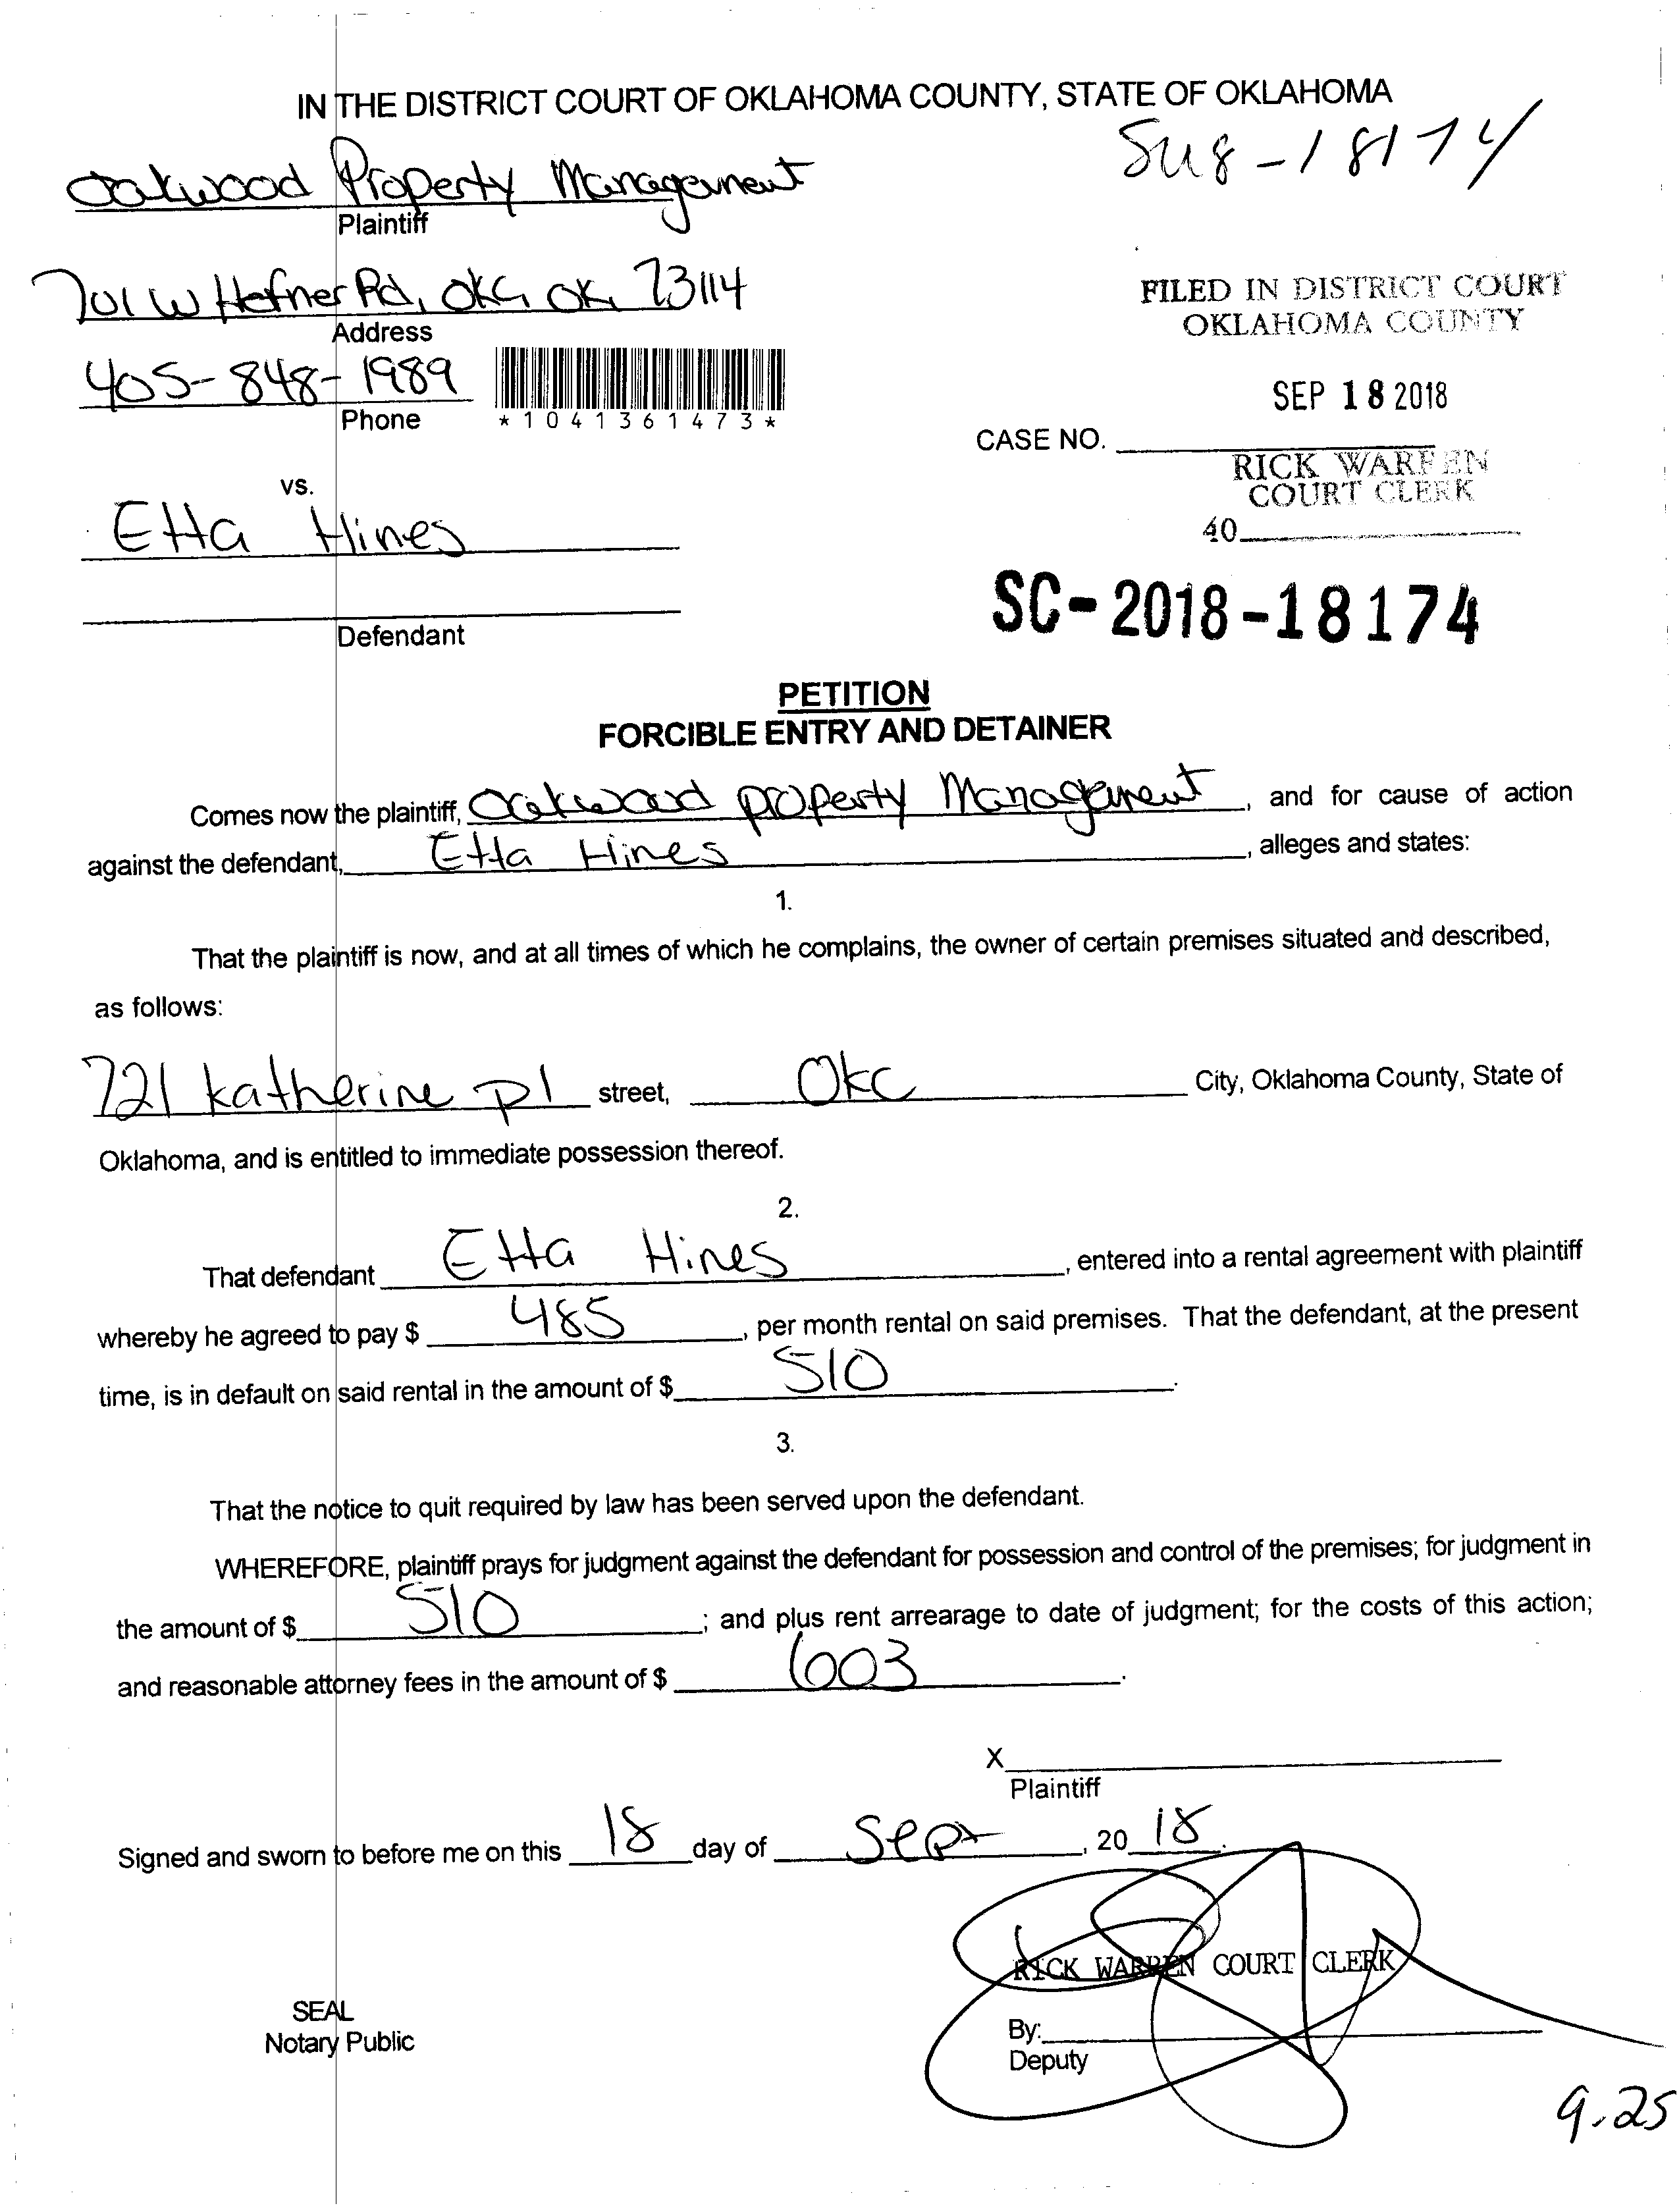 IN THE DISTRICT COURT OF OKLAHOMA COUNTY, STATE OF OKLAHOMA
Oakwood Property Management
Plaintiff
701 W Hefner Rd, OKC, OK, 73114
Address
405-848-1989
Phone
*1041361473*
vs.
Etta Hines
Defendant
-18174
FILED IN DISTRICT COURT
OKLAHOMA COUNTY
SEP 18 2018
CASE NO.
RICK WARREN
COURT CLERK
40
SC-2018-18174
PETITION
FORCIBLE ENTRY AND DETAINER
Comes now the plaintiff, Oakwood property Management, and for cause of action
against the defendant, Etta Hines, alleges and states:
1.
That the plaintiff is now, and at all times of which he complains, the owner of certain premises situated and described,
as follows:
721 katherine pl street, Okc City, Oklahoma County, State of
Oklahoma, and is entitled to immediate possession thereof.
2.
That defendant Etta Hines, entered into a rental agreement with plaintiff
whereby he agreed to pay $ 485, per month rental on said premises. That the defendant, at the present
time, is in default on said rental in the amount of $ 510.
3.
That the notice to quit required by law has been served upon the defendant.
WHEREFORE, plaintiff prays for judgment against the defendant for possession and control of the premises; for judgment in
the amount of $ 510; and plus rent arrearage to date of judgment; for the costs of this action;
and reasonable attorney fees in the amount of $ 603.
X
Plaintiff
Signed and sworn to before me on this 18 day of Sept, 20 18.
RICK WARREN COURT CLERK
SEAL
Notary Public
By:
Deputy
9.25